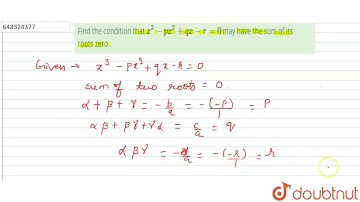 648324377
Find the condition that x³ − px² + qx − r = 0 may have the sum of its
roots zero.
Given → x³ - px² + qx - r = 0.
sum of two roots = 0.
α + β + γ = -b/a = -(-p)/1 = p
αβ + βγ + γα = c/a = q
αβγ = -d/a = -(-r)/1 = r
doubtnut